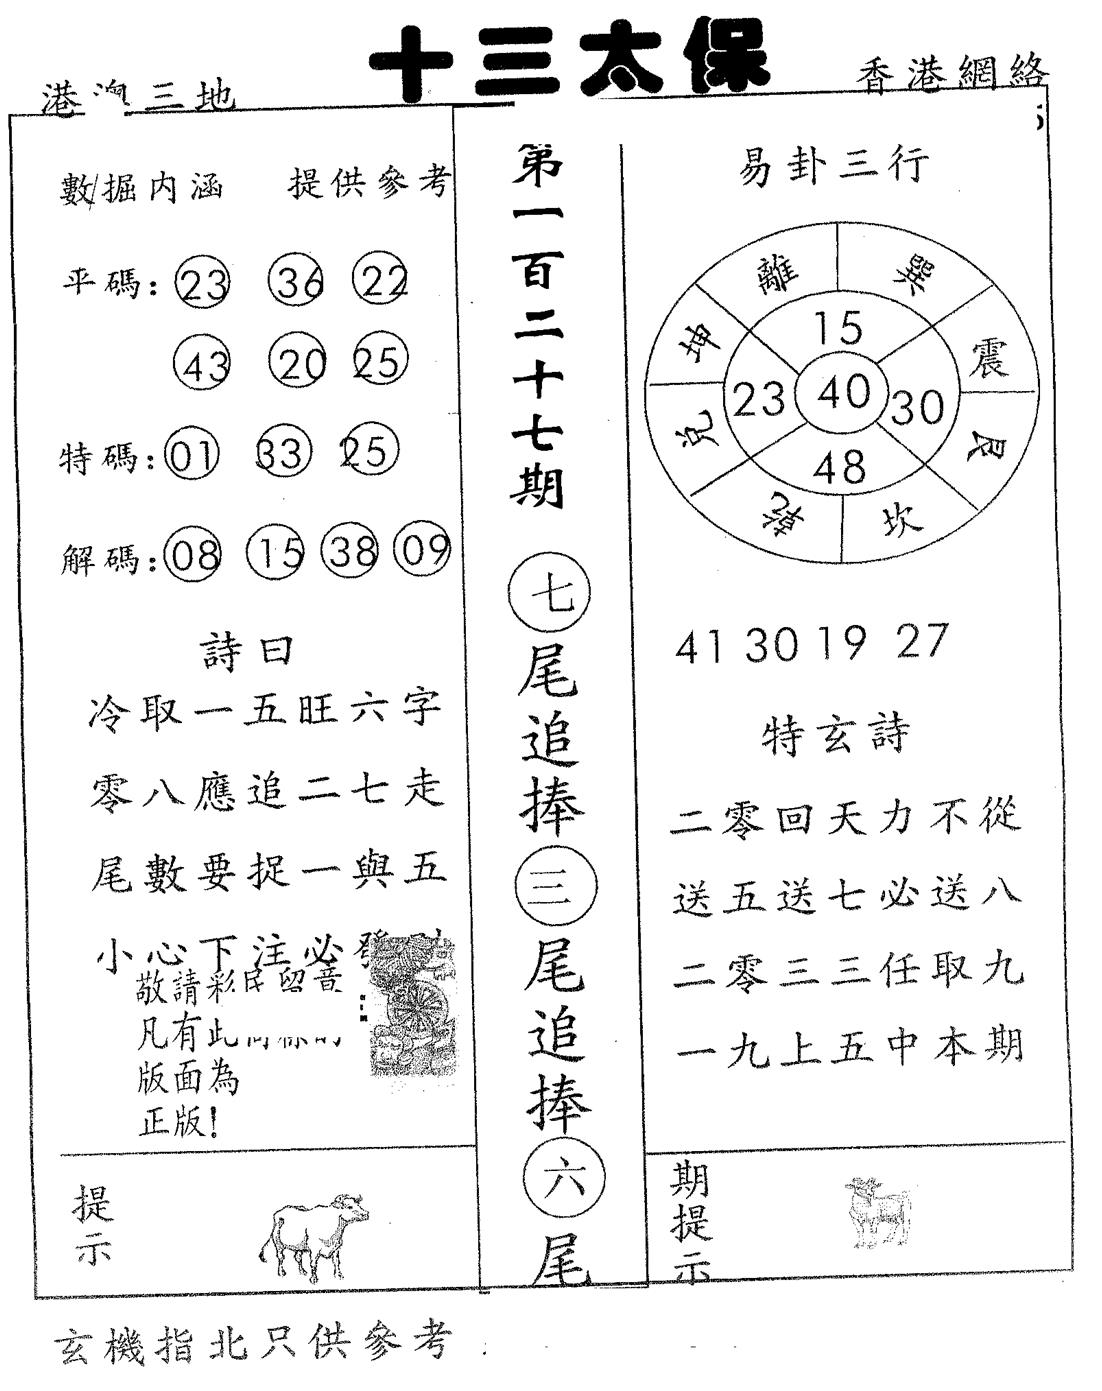 十三太保
港澳三地
香港網絡
數掘内涵 提供參考
平碼: 23 36 22
43 20 25
特碼: 01 33 25
解碼: 08 15 38 09
詩曰
冷取一五旺六字
零八應追二七走
尾數要捉一與五
小心下注必發
敬請彩民留意
凡有此
版面為
正版!
提示
第一百二十七期
七尾追捧三尾追捧六尾
易卦三行
離 巽
坤 震
兌 艮
乾 坎
15
23 40 30
48
41 30 19 27
特玄詩
二零回天力不從
送五送七必送八
二零三三任取九
一九上五中本期
期提示
玄機指北只供參考